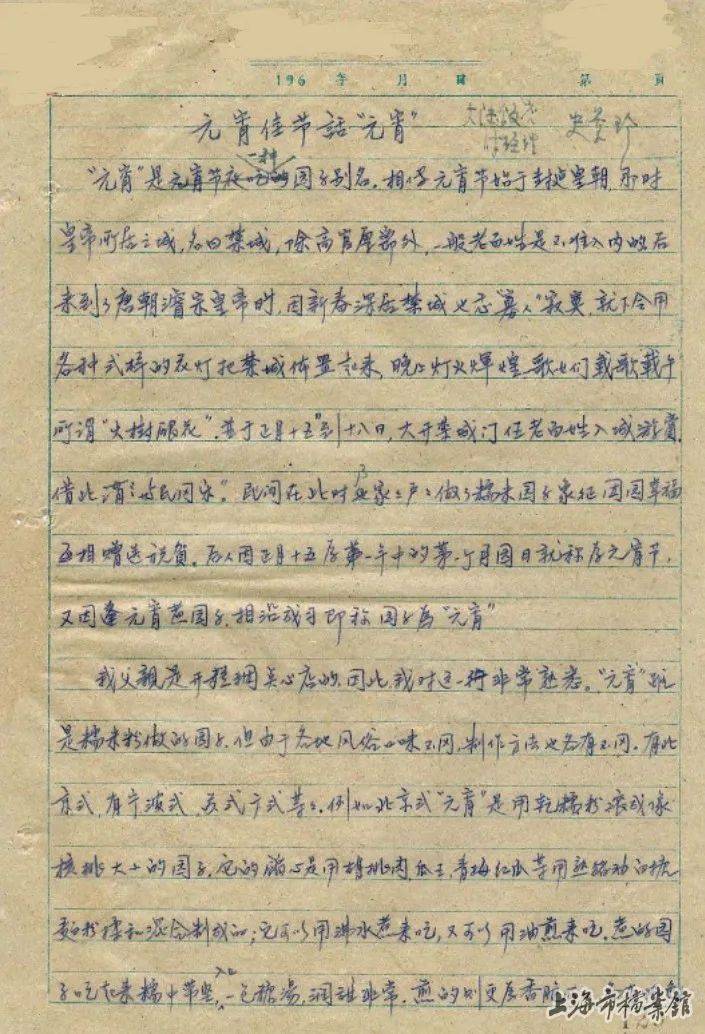 196 年 月 日 第 页
元宵佳节話“元宵” 大陆饭店 史爱珍
付经理
一种
“元宵”是元宵节夜吃的团子别名。相传元宵节始于封建皇朝,那时
皇帝所居之城,名曰禁城,除高官厚爵外,一般老百姓是不准入内的后
来到了唐朝濬宗皇帝时,因新春深居禁城也忐“寡人”寂寞,就下令用
各种式样的花灯把禁城佈置起来,晚上灯火輝煌歌女们载歌载午
所谓“火樹银花”,並于正月十五到十八日,大开禁城门任老百姓入城游赏,
借此谓之“与民同乐”。民间在此时户家々户々做了糯米团子象征团团幸福
互相赠送祝賀。后人因正月十五属第一年中的第一个月圆日就称为元宵节,
又因逢元宵煮团子,相沿成习即称团子為“元宵”
我父親是开糕糰点心店的,因此,我对这一行非常熟悉。“元宵”虽
是糯米粉做的团子,但由于各地风俗口味不同,制作方法也各有不同。有北
京式,有宁波式,苏式广式等々。例如北京式“元宵”是用乾糯粉滚成像
核桃大小的团子,它的餡心是用胡桃肉,瓜子,青梅红瓜等用熟猪油白糖
麵粉揉和混合制成的;它可以用沸水煮来吃,又可以用油煎来吃。煮的团
子吃起来糯中带坚,入口一包糖湯,润甜非常。煎的则更属香脆
上海市檔案館